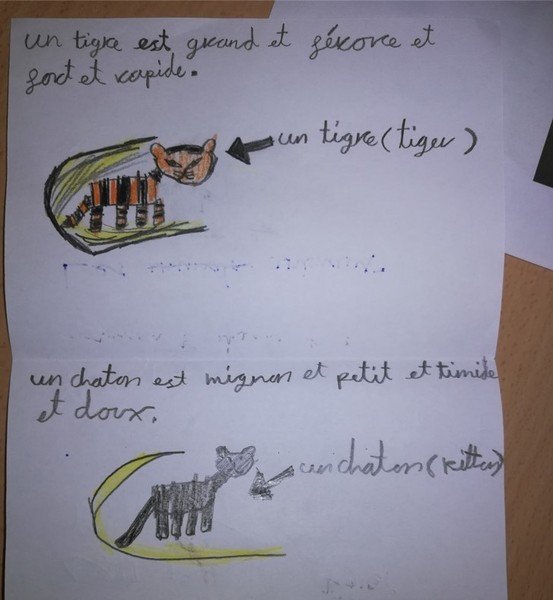 un tigre est grand et féroce et
fort et rapide.
un tigre (tiger)
un chaton est mignon et petit et timide
et doux.
un chaton (kitten)